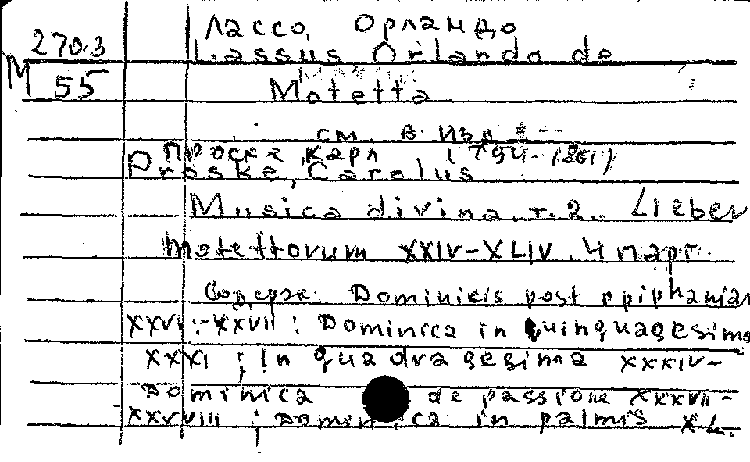 Лассо, Орландо
270.3 Lassus Orlando de
М 55 Motetta
см. в изд:
Проске, Карл (1794-1861)
Proske, Carolus
Musica divina. т. 2. Liber
Motettorum XXIV-XLIV. 4 парт.
Содерж: Dominicis post epiphaniam
XXVI-XXVII; Dominica in quinquagesima
XXXI; In quadragesima XXXIV-
Dominica de passione XXXVII-
XXXVIII; Dominica in palmis XL.